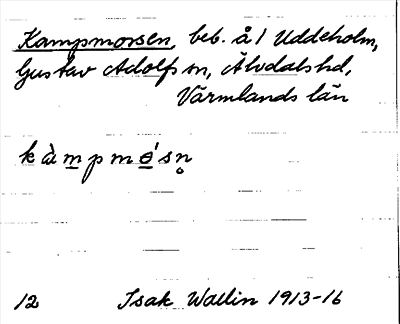 Kampmossen, beb. å / Uddeholm,
Gustav Adolf sn, Älvdals hd,
Värmlands län
kàmpmós̥n
12 Isak Wallin 1913-16